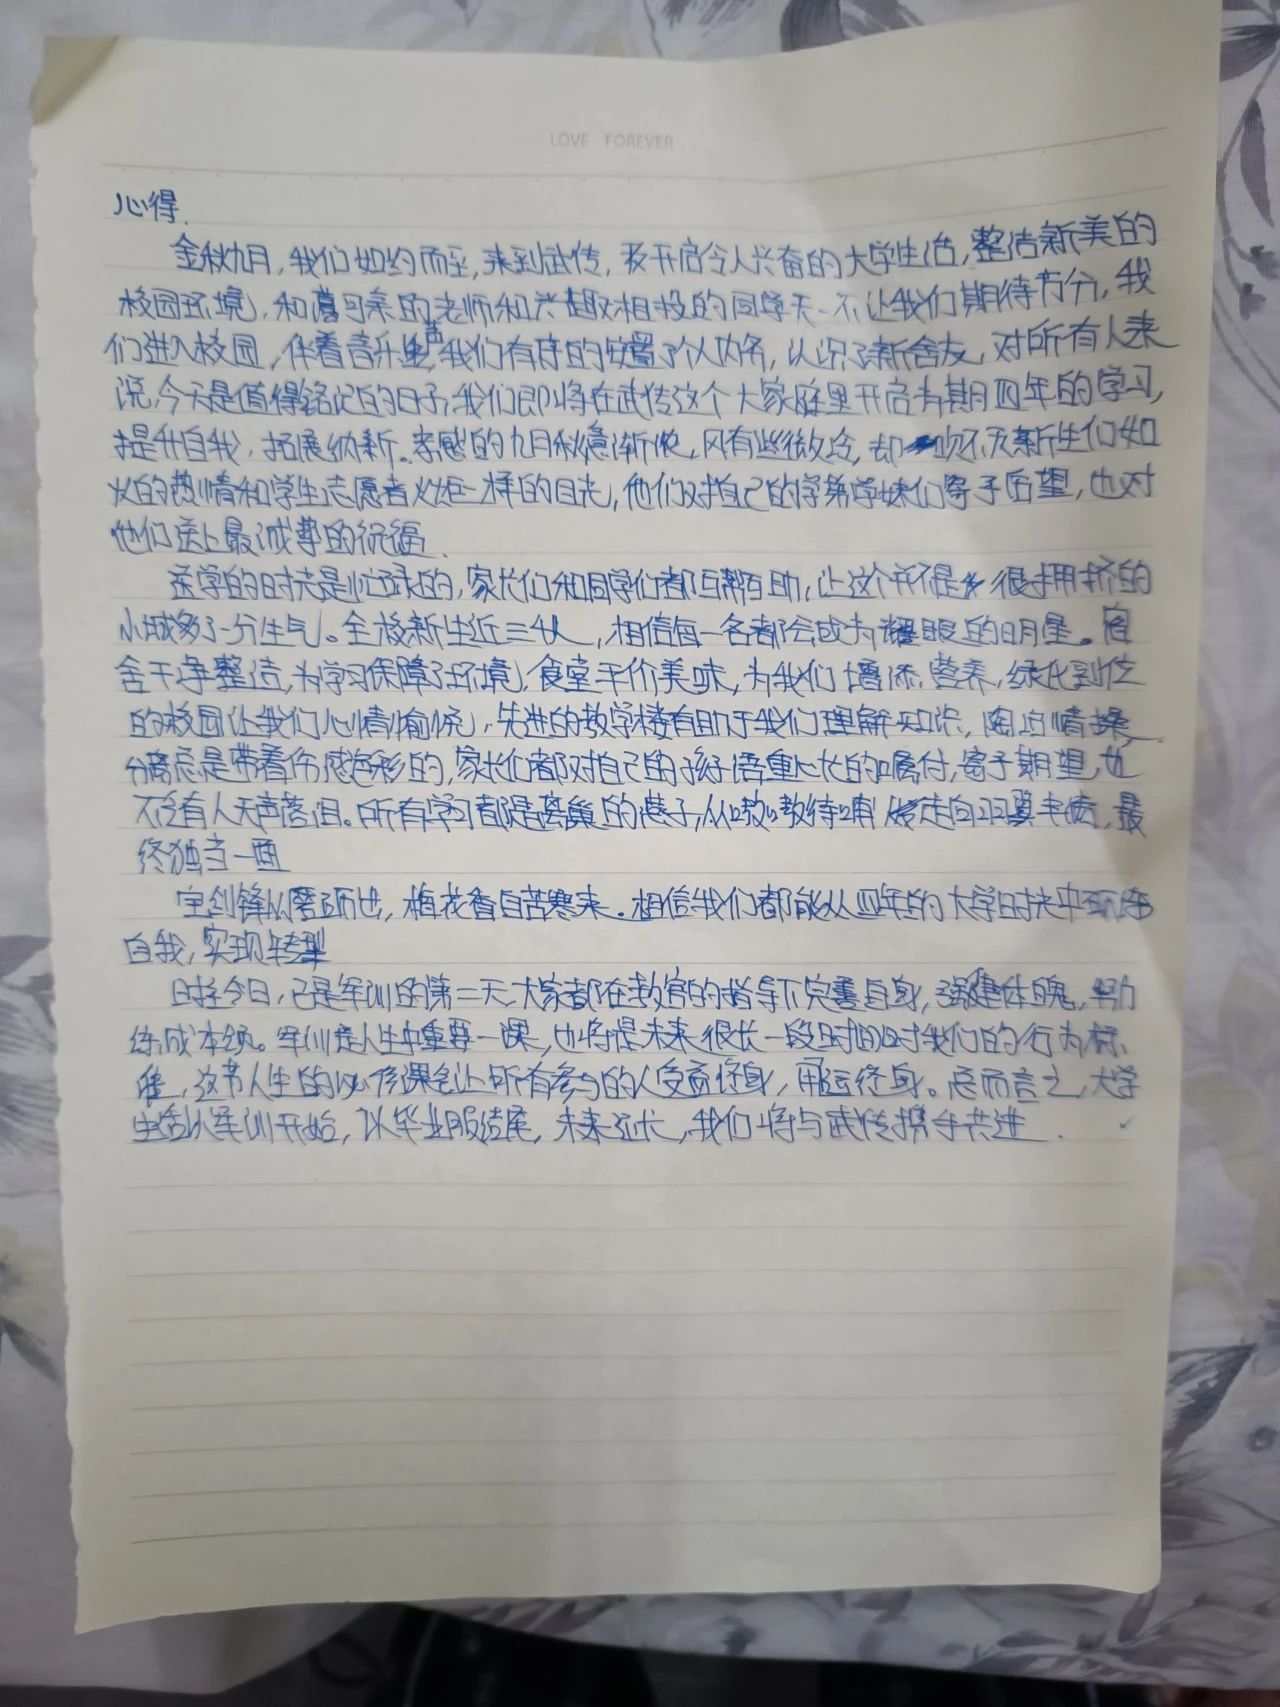 LOVE FOREVER...
心得.
金秋九月,我们如约而至,来到武传,开启令人兴奋的大学生活,整洁新美的
校园环境,和蔼可亲的老师和兴趣相投的同学无一不让我们期待万分,我
们进入校园,伴着音乐声,我们有序的安置了个人内务,认识了新舍友,对所有人来
说,今天是值得铭记的日子,我们即将在武传这个大家庭里开启为期四年的学习,
提升自我,拓展纳新。孝感的九月秋意渐浓,风有些微冷,却吹不灭新生们如
火的热情和学生志愿者火炬一样的目光,他们对自己的学弟学妹们寄予厚望,也对
他们送上最诚挚的祝福.
开学的时光是忙碌的,家长们和同学们都互帮互助,让这个并不是很拥挤的
小城多了一分生气。全校新生近三千人,相信每一名都会成为耀眼的明星。宿
舍干净整洁,为学习保障了环境,食堂平价美味,为我们增添营养,绿化到位
的校园让我们心情愉悦,先进的教学楼有助于我们理解知识,陶冶情操,
分离总是带着伤感色彩的,家长们都对自己的孩子语重心长的嘱付,寄予期望,也
不乏有人无声落泪。所有学习都是离巢的燕子,从嗷嗷待哺走向羽翼丰满,最
终独当一面
宝剑锋从磨砺出,梅花香自苦寒来.相信我们都能从四年的大学时光中
自我,实现转型
时至今日,已是军训的第二天,大家都在教官的指导下完善自身,强健体魄,努力
练成本领。军训是人生中重要一课,也将是未来很长一段时间对我们的行为标
准,这节人生的必修课会让所有参与的人受益终身,用运终身。总而言之,大学
生活从军训开始,以毕业服结尾,未来还长,我们将与武传携手共进.